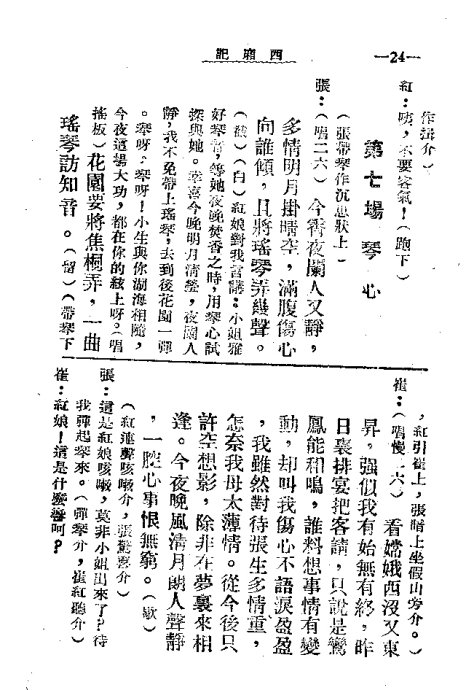 —24—
西廂記
作揖介）
紅：咦，不要客氣！（跑下）
第七場　琴心
（張帶琴作沉思狀上）
張：（唱二六）今宵夜闌人又靜，
多情明月掛晴空，滿腹傷心
向誰傾，且將瑤琴弄幾聲。
（截）（白）紅娘對我言講：小姐雅
好琴音，等她夜晚焚香之時，用琴心試
探與她。幸喜今晚明月清瑩，夜闌人
靜，我不免帶上瑤琴，去到後花園一彈
。琴呀，琴呀！小生與你湖海相隨，
今夜這場大功，都在你的絃上呀。（唱
搖板）花園要將焦桐弄，一曲
瑤琴訪知音。（留）（帶琴下
，紅引崔上，張暗上坐假山旁介。）
崔：（唱慢二六）看嫦娥西沒又東
昇，強似我有始無有終，昨
日裏排宴把客請，只說是鸞
鳳能和鳴，誰料想事情有變
動，却叫我傷心不語淚盈盈
，我雖然對待張生多情重，
怎奈我母太薄情。從今後只
許空想影，除非在夢裏來相
逢。今夜晚風清月朗人聲靜
，一腔心事恨無窮。（歇）
（紅連聲咳嗽介，張驚喜介）
張：這是紅娘咳嗽，莫非小姐出來了？待
我彈起琴來。（彈琴介，崔紅聽介）
崔：紅娘！這是什麼響呵？